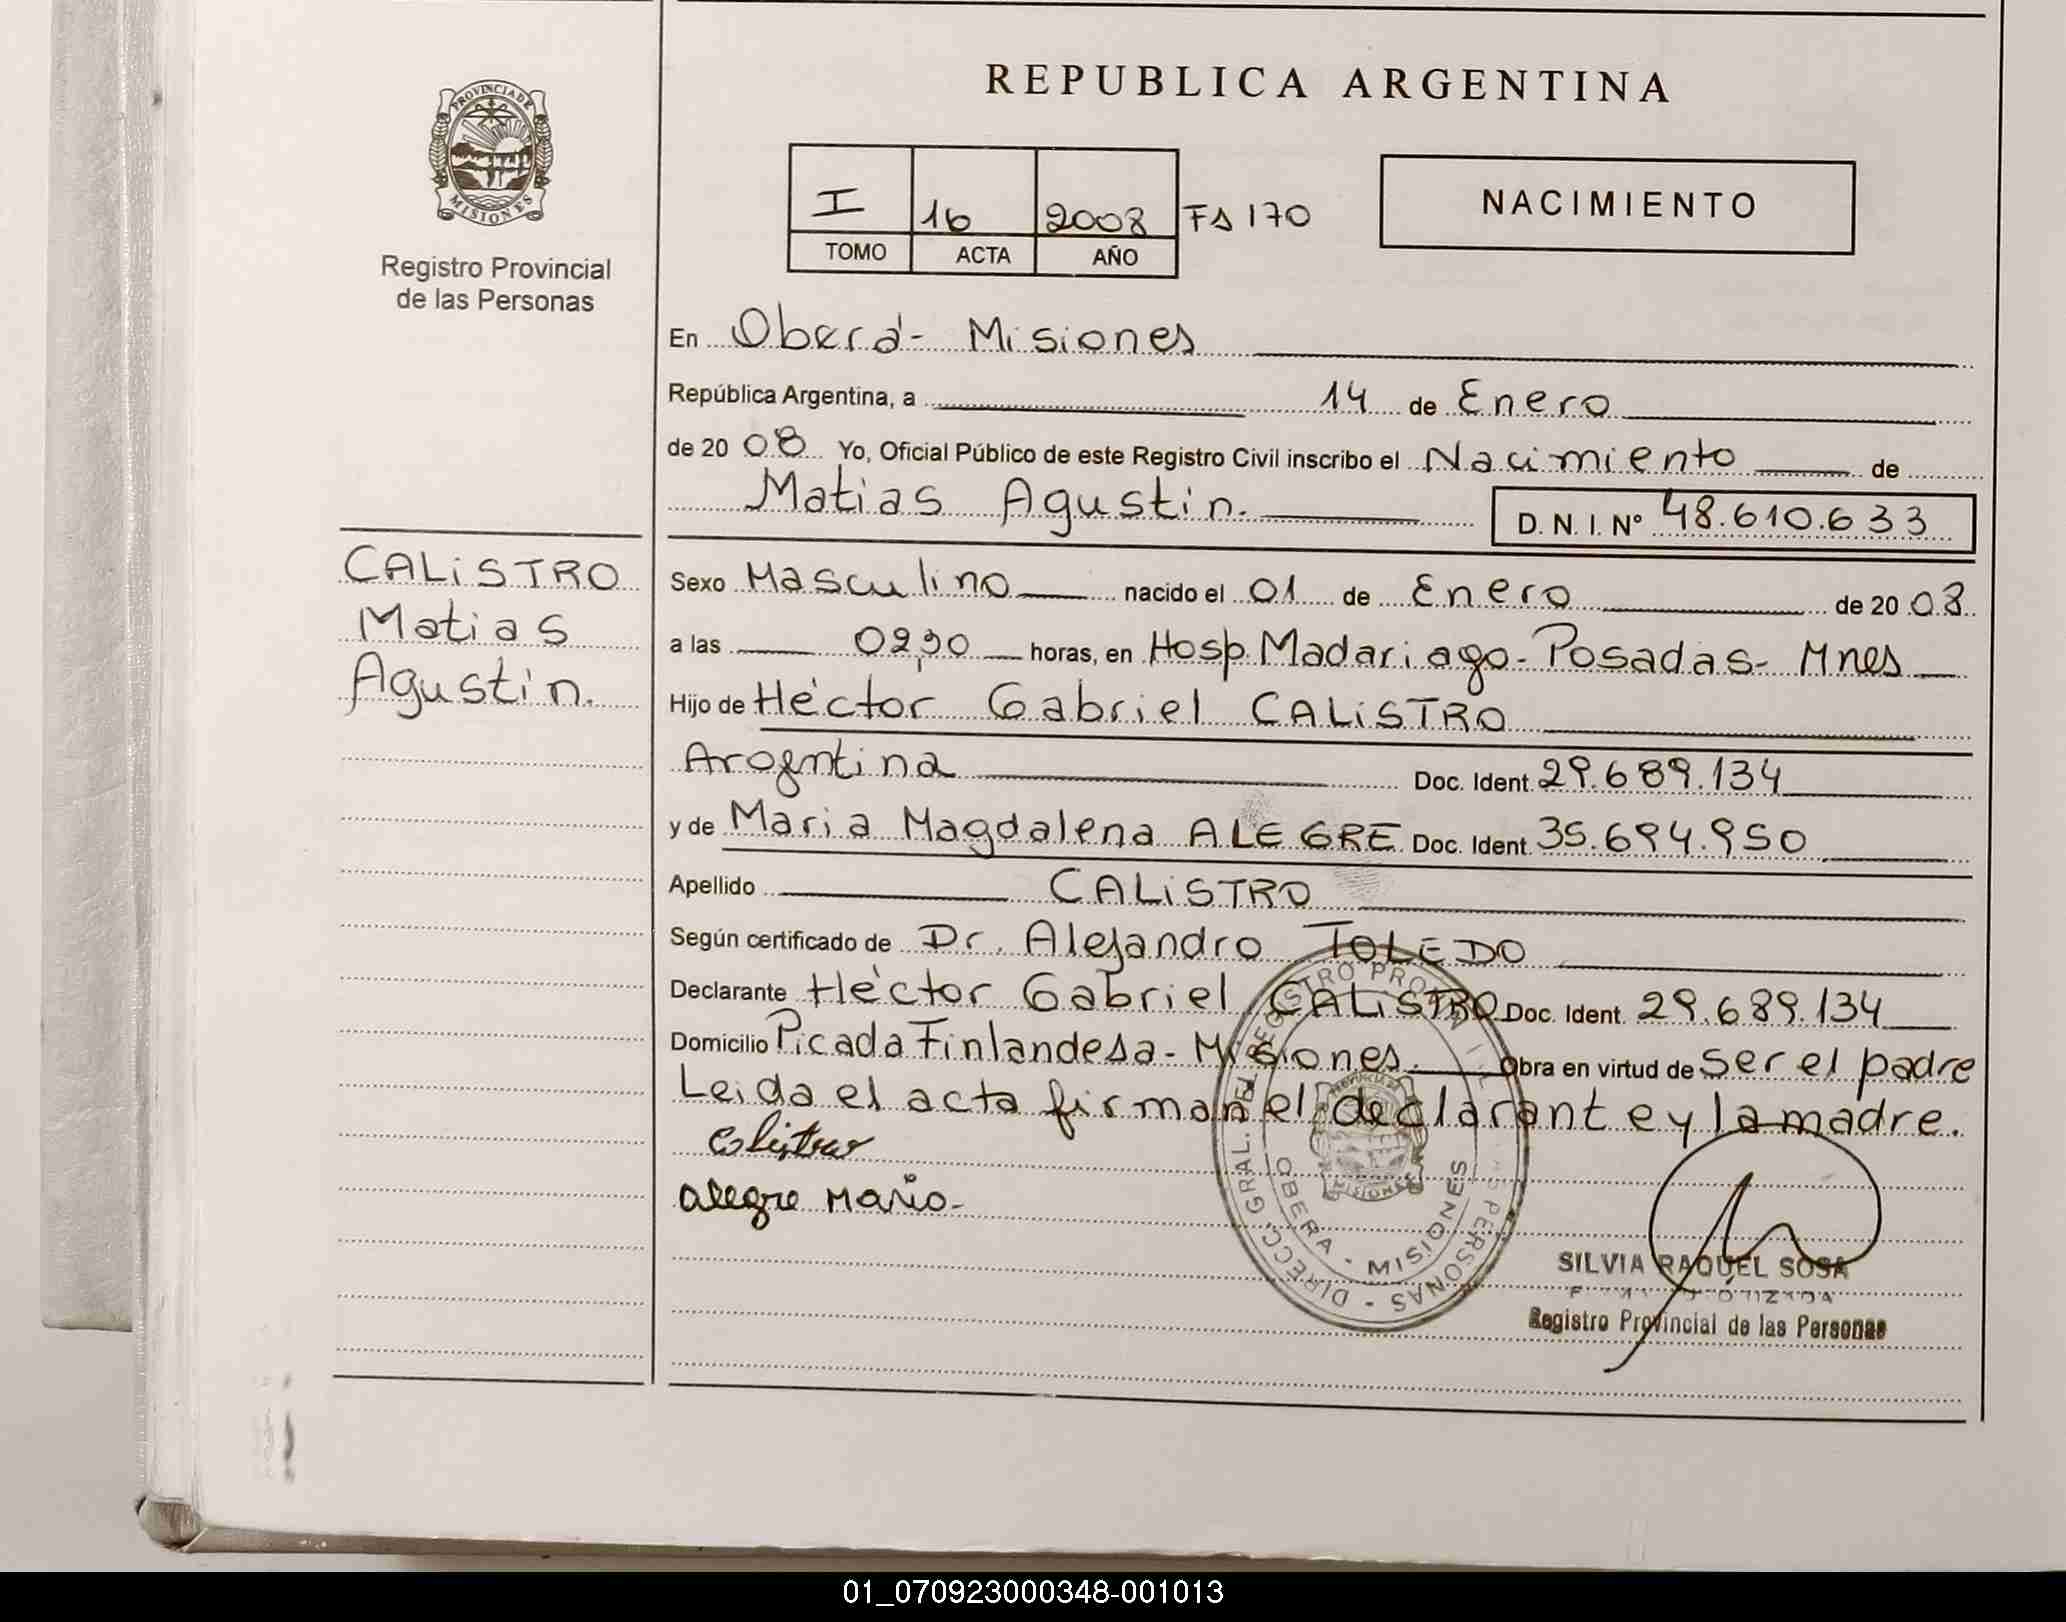 REPUBLICA ARGENTINA
PROVINCIA DE
MISIONES
Registro Provincial
de las Personas
I 16 2008 Fs 170
TOMO ACTA AÑO
NACIMIENTO
En Oberá- Misiones
República Argentina, a 14 de Enero
de 20 08 Yo, Oficial Público de este Registro Civil inscribo el Nacimiento de
Matias Agustin. D. N. I. Nº 48.610.633
CALISTRO
Matias
Agustin.
Sexo Masculino nacido el 01 de Enero de 20 08
a las horas, en Hosp. Madariaga- Posadas- Mnes
Hijo de Héctor Gabriel CALISTRO
Argentina Doc. Ident. 29.689.134
y de Maria Magdalena ALEGRE Doc. Ident. 35.694.950
Apellido CALISTRO
Según certificado de Dr. Alejandro TOLEDO
Declarante Héctor Gabriel CALISTRO Doc. Ident. 29.689.134
Domicilio Picada Finlandesa- Misiones. Obra en virtud de ser el padre
Leida el acta firman el declarante y la madre.
Calistro
alegre Maria-
DIRECC. GRAL. DEL REGISTRO PROVINCIAL DE LAS PERSONAS -
OBERA - MISIONES
SILVIA RAQUEL SOSA
Registro Provincial de las Personas
01_070923000348-001013